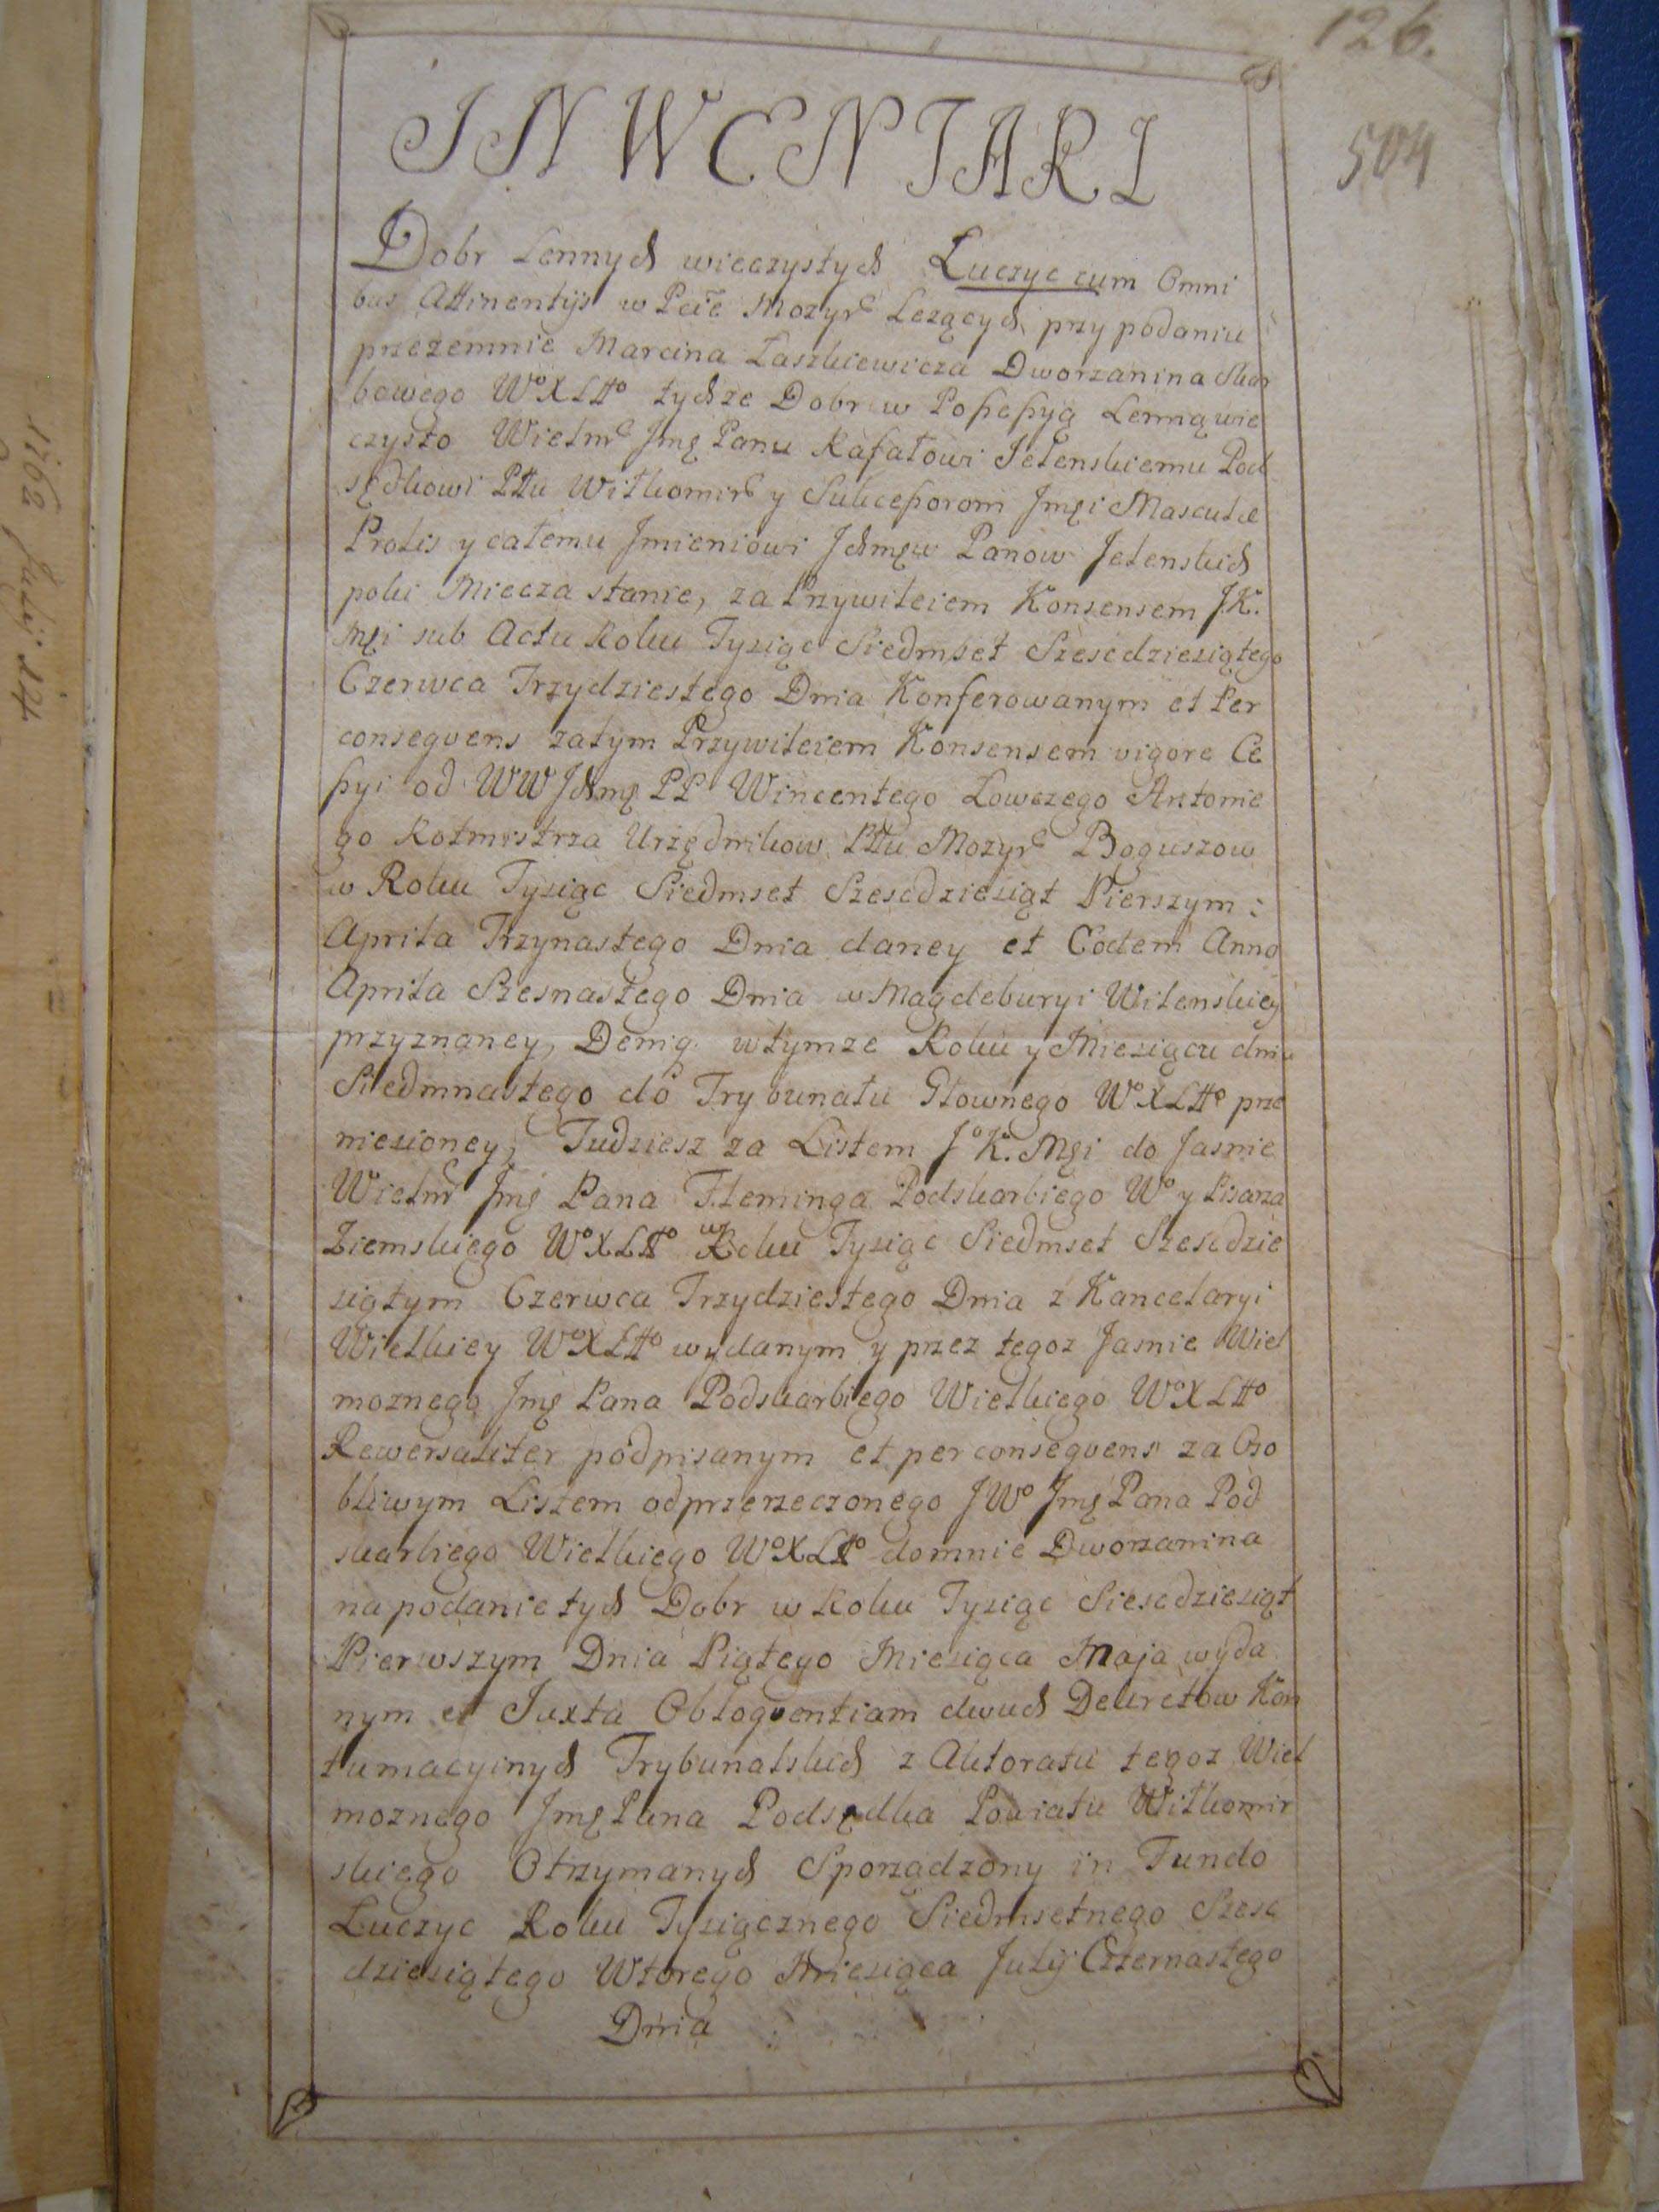 126.
504
INWENTARZ
Dobr Lennych wieczystych Łuczyc cum Omni
bus Attinentijs w Pcie Mozyrᶜ Lezących, przy podaniu
przezemnie Marcina Łaszkiewicza Dworzanina Skar
bowego Wº X Lttº tychze Dobr w Possessyą Lenną wie
czysto Wielmᶜ Jmę Panu Rafałowi Jelenskiemu Pod
sędkowi Pttu Wiłkomirᶜ y Sukcessorom Jmęi Masculæ
Prolis y całemu Jmieniowi Jchmęw Panow Jelenskich
poki Miecza stanie, za Przywileiem Konsensem J.K.
Męi sub Actu Roku Tysiąc Siedmset Szescdziesiątego
Czerwca Trzydziestego Dnia Konferowanym et Per
consequens zatym Przywileiem Konsensem vigore Ce
ssyi od WW Jchmę PP Wincentego Łowczego Antonie
go Rotmistrza Urzędnikow Pttu Mozyrᶜ Boguszow
w Roku Tysiąc Siedmset Szescdziesiąt Pierszym:
Aprila Trzynastego Dnia daney et Eodem Anno
Aprila Szesnastego Dnia w Magdeburyi Wilenskiey
przyznaney, Deniq. wtymze Roku y Miesiącu dnia
Siedmnastego do Trybunału Głownego Wº X Lttº prze
niesioney, Tudziesz za Listem Jº K. Męi do Jasnie
Wielmᶜ Jmę Pana Fleminga Podskarbiego Wº y Pisarza
Ziemskiego Wº X Lttº w Roku Tysiąc Siedmset Szescdzie
siątym Czerwca Trzydziestego Dnia z Kancelaryi
Wielkiey Wº X Lttº wydanym y przez tegoz Jasnie Wiel
moznego Jmę Pana Podskarbiego Wielkiego Wº X Lttº
Rewersaliter podpisanym et per consequens za Oso
bliwym Listem od przerzeczonego J Wº Jmę Pana Pod
skarbiego Wielkiego Wº X Lttº domnie Dworzanina
na podanie tych Dobr w Roku Tysiąc Siescdziesiąt
Pierwszym Dnia Piątego Miesiąca Maja wyda
nym et Juxta Obloquentiam dwuch Dekretow Kon
tumacyinych Trybunalskich z Aktoratu tegoz Wiel
moznego Jmę Pana Podsędka Powiatu Wiłkomir
skiego Otrzymanych Sporządzony in Fundo
Łuczyc Roku Tysiącznego Siedmsetnego Szesc
dziesiątego Wtorego Miesiąca Julij Czternastego
Dnia
1762 Julii 14